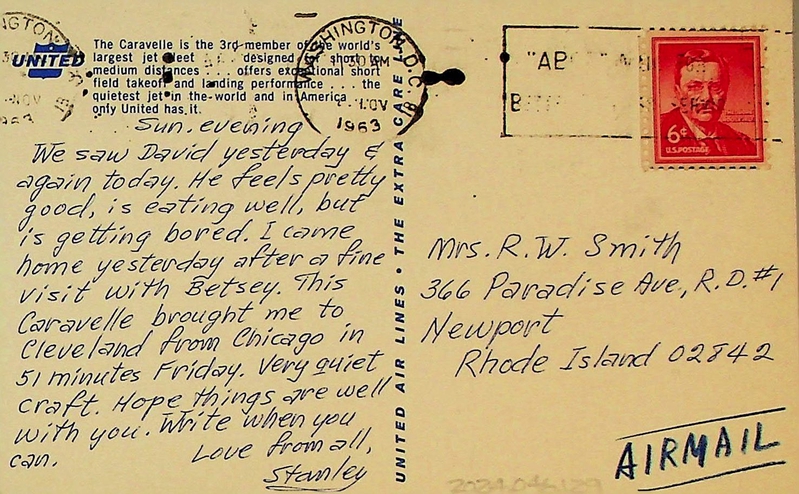 UNITED
The Caravelle is the 3rd member of the world's
largest jet fleet . . . designed for short to
medium distances . . . offers exceptional short
field takeoff and landing performance . . . the
quietest jet in the world and in America
only United has it.
WASHINGTON, D.C.
30 PM
NOV
1963
6¢
U.S. POSTAGE
Sun. evening
We saw David yesterday &
again today. He feels pretty
good, is eating well, but
is getting bored. I came
home yesterday after a fine
visit with Betsey. This
Caravelle brought me to
Cleveland from Chicago in
51 minutes Friday. Very quiet
craft. Hope things are well
with you. Write when you
can.
Love from all,
Stanley
UNITED AIR LINES • THE EXTRA CARE LINE
Mrs. R.W. Smith
366 Paradise Ave, R.D. #1
Newport
Rhode Island 02842
AIRMAIL